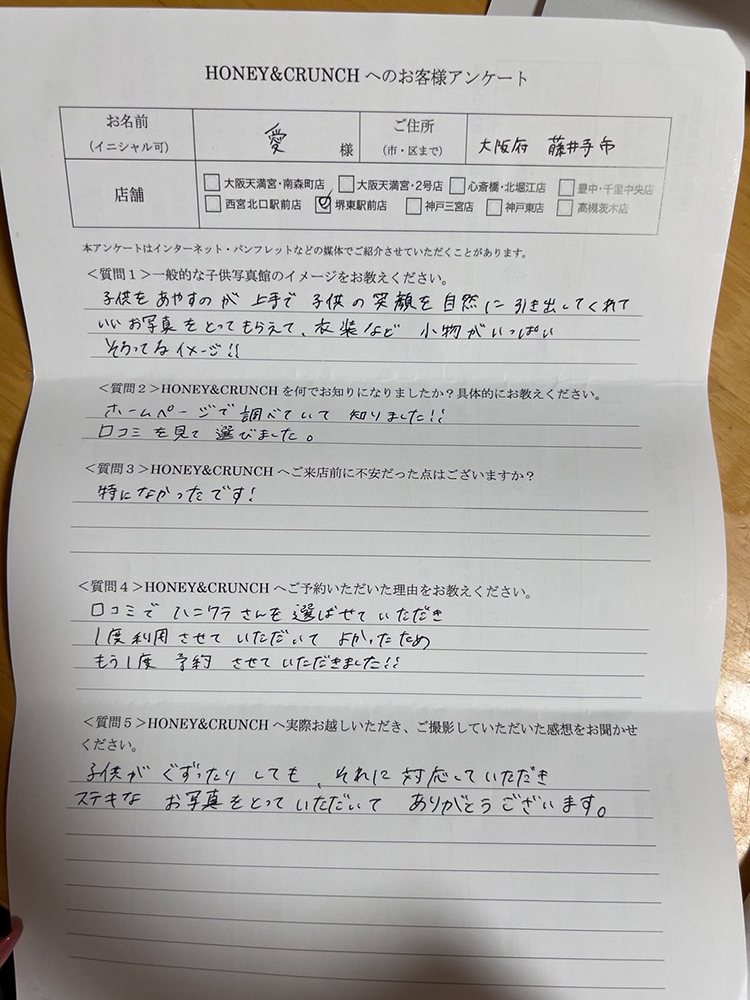 HONEY&CRUNCH へのお客様アンケート
お名前
(イニシャル可)
愛 様
ご住所
(市・区まで)
大阪府 藤井寺市
店舗
大阪天満宮・南森町店 大阪天満宮・2号店 心斎橋・北堀江店 豊中・千里中央店
西宮北口駅前店 堺東駅前店 神戸三宮店 神戸東店 高槻茨木店
本アンケートはインターネット・パンフレットなどの媒体でご紹介させていただくことがあります。
<質問1>一般的な子供写真館のイメージをお教えください。
子供をあやすのが 上手で 子供の笑顔を自然に引き出してくれて
いいお写真をとってもらえて、衣装など 小物がいっぱい
そろってるイメージ!!
<質問2>HONEY&CRUNCH を何でお知りになりましたか?具体的にお教えください。
ホームページで調べていて 知りました!!
口コミを見て 選びました。
<質問3>HONEY&CRUNCH へご来店前に不安だった点はございますか?
特になかったです!
<質問4>HONEY&CRUNCH へご予約いただいた理由をお教えください。
口コミで ハニクラさんを選ばせていただき
1度利用させていただいて よかったため
もう1度 予約 させていただきました!!
<質問5>HONEY&CRUNCH へ実際お越しいただき、ご撮影していただいた感想をお聞かせ
ください。
子供が ぐずったり しても、それに対応していただき
ステキな お写真をとっていただいて ありがとうございます。